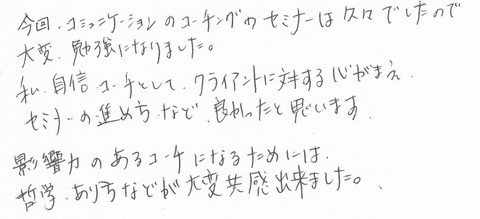 今回、コミュニケーションのコーチングのセミナーは久々でしたので
大変、勉強になりました。
私、自信、コーチとして、クライアントに対する心がまえ、
セミナーの進め方など、良かったと思います。
影響力のあるコーチになるためには、
哲学、あり方などが大変共感出来ました。